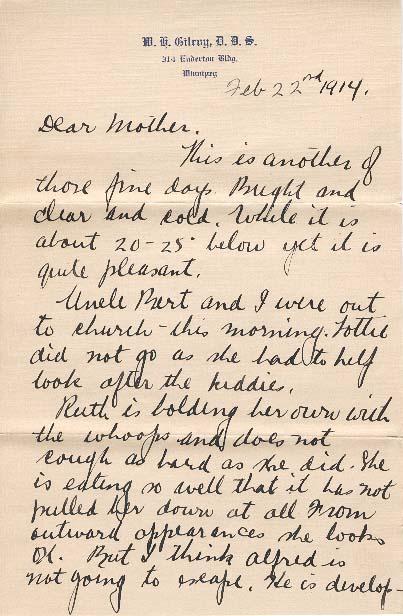 W. H. Gilroy, D. D. S.
314 Enderton Bldg.
Winnipeg
Feb 22nd 1914.
Dear Mother.
This is another of
those fine days Bright and
clear and cold. While it is
about 20-25° below yet it is
quite pleasant.
Uncle Bert and I were out
to church - this morning. Tottie
did not go as she had to help
look after the kiddies.
Ruth is holding her own with
the whoops and does not
cough as hard as she did. She
is eating so well that it has not
pulled her down at all From
outward appearances she looks
OK. But I think alfred is
not going to escape. He is develop-